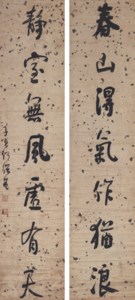 春山得氣作猶浪
靜室無風虛有
子貞何紹基